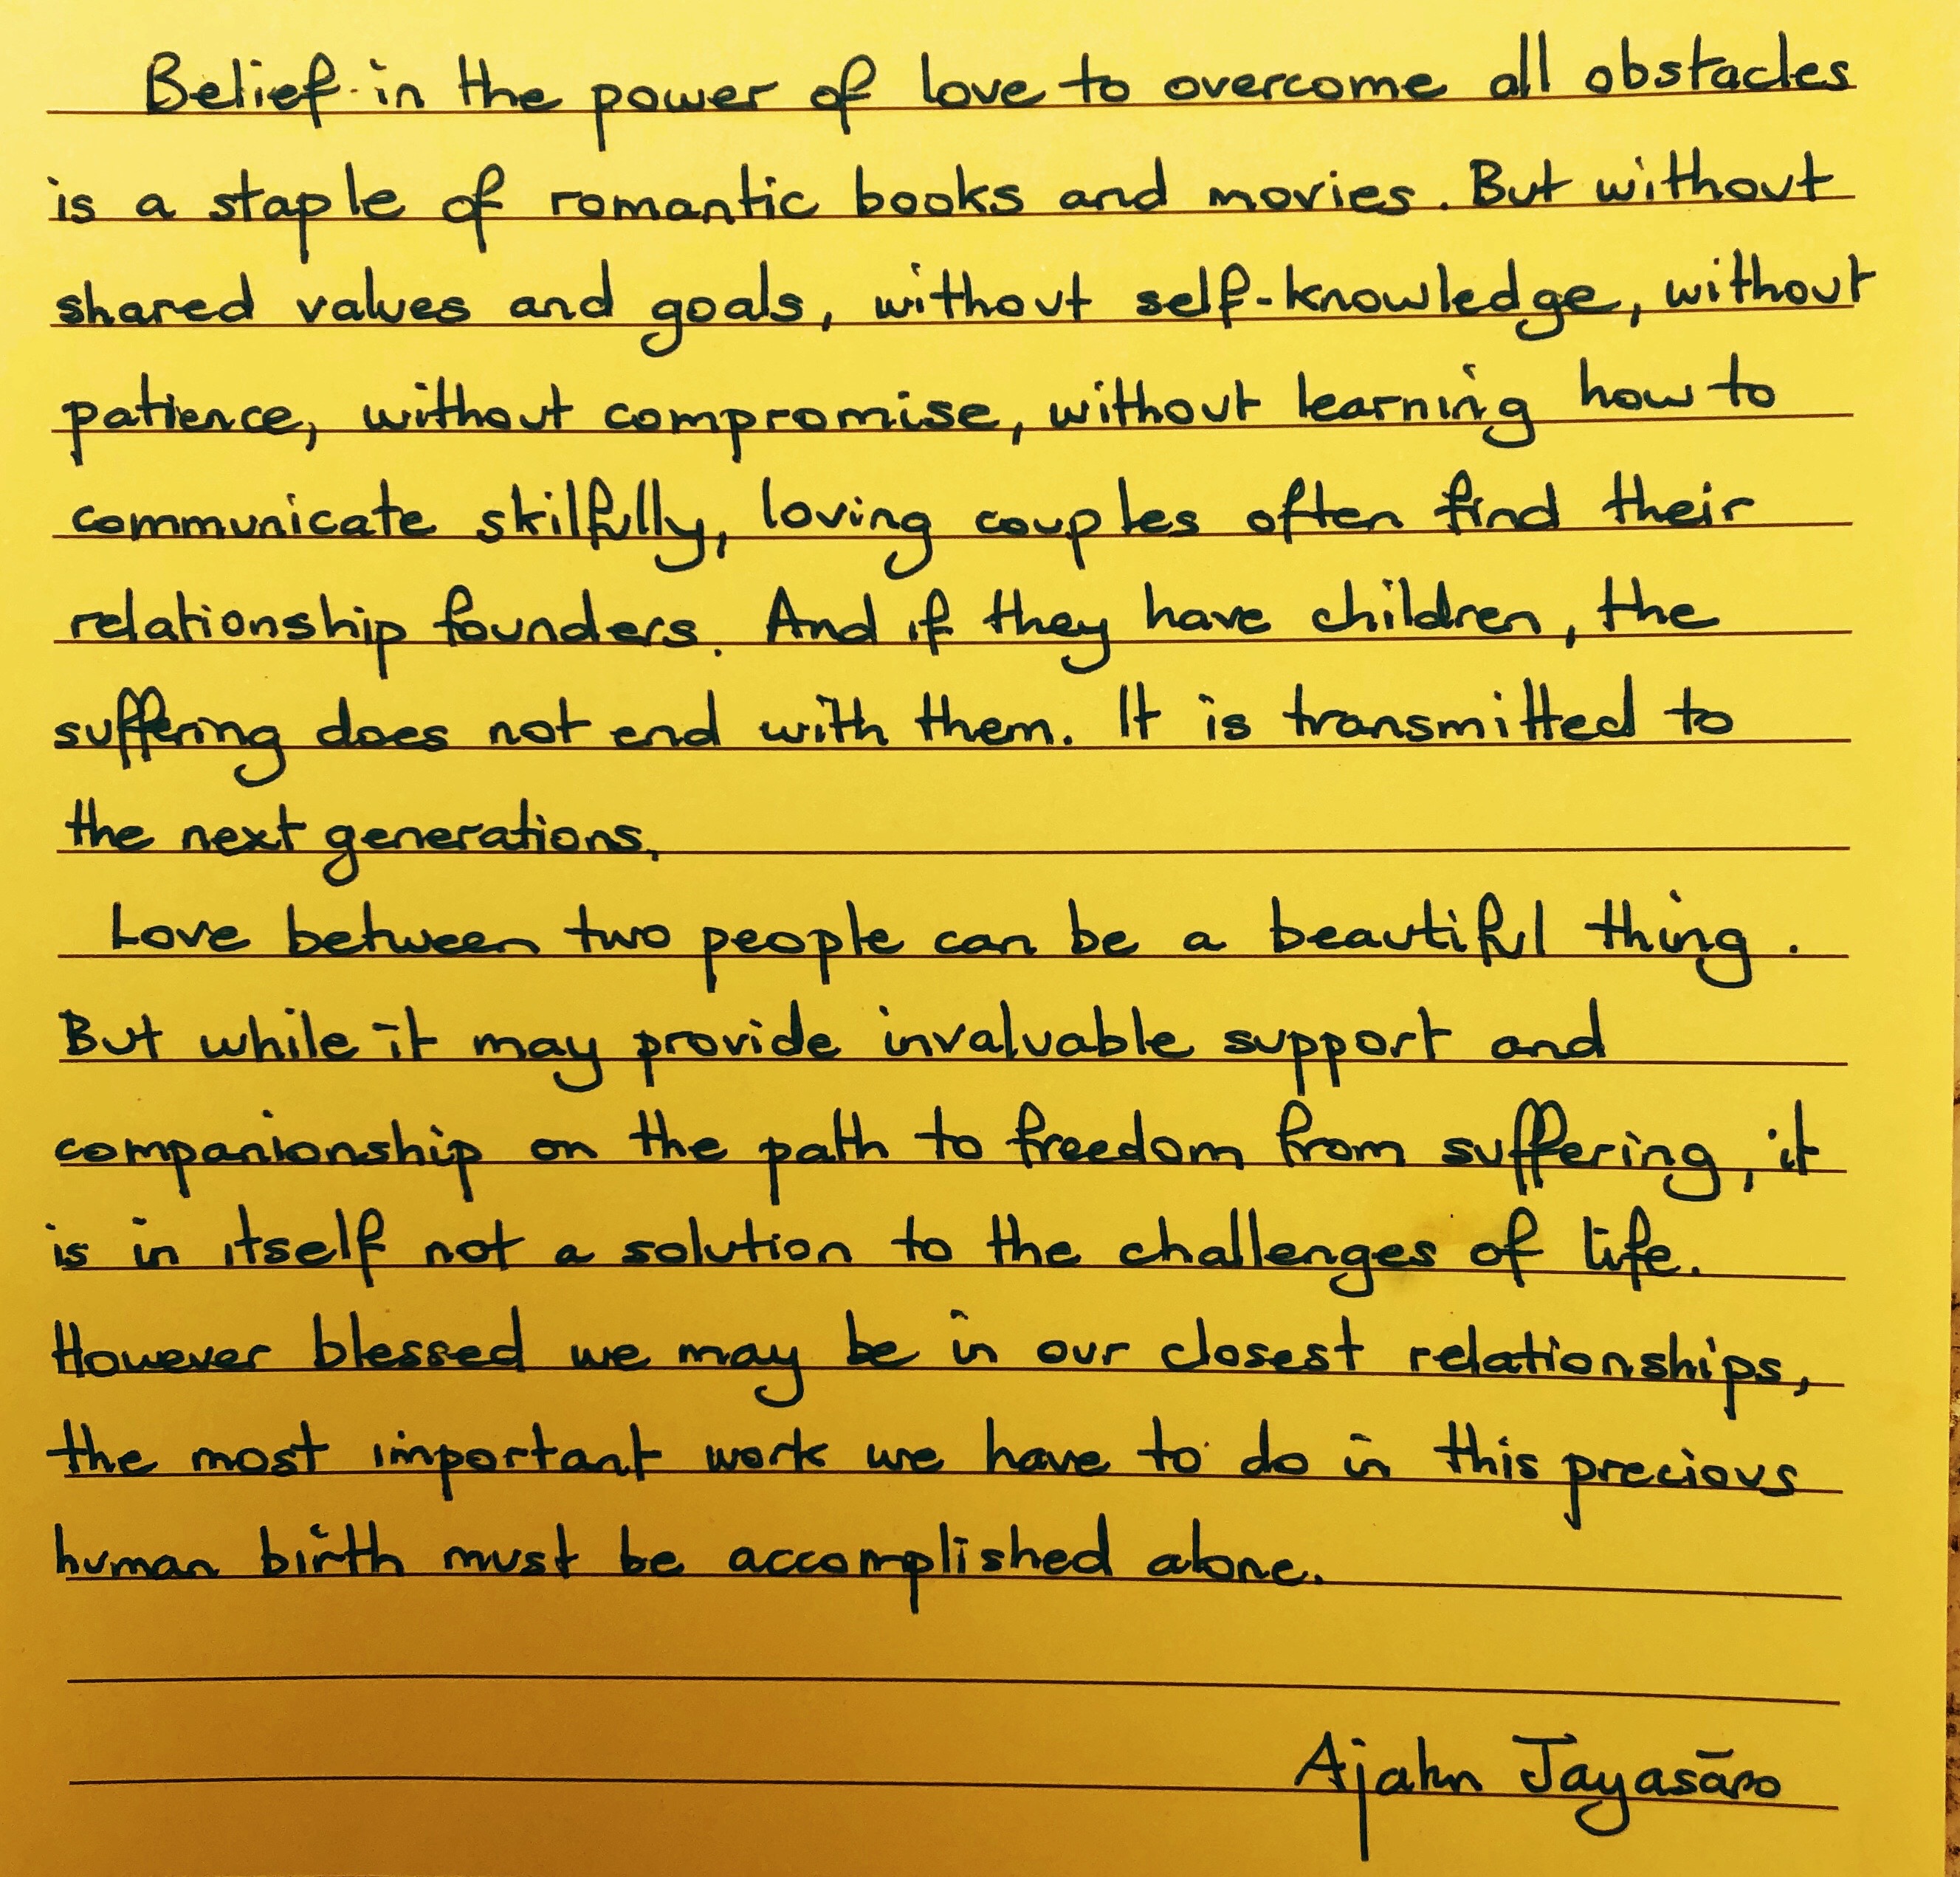 Belief in the power of love to overcome all obstacles
is a staple of romantic books and movies. But without
shared values and goals, without self-knowledge, without
patience, without compromise, without learning how to
communicate skilfully, loving couples often find their
relationship founders. And if they have children, the
suffering does not end with them. It is transmitted to
the next generations.
Love between two people can be a beautiful thing.
But while it may provide invaluable support and
companionship on the path to freedom from suffering, it
is in itself not a solution to the challenges of life.
However blessed we may be in our closest relationships,
the most important work we have to do in this precious
human birth must be accomplished alone.
Ajahn Jayasāro